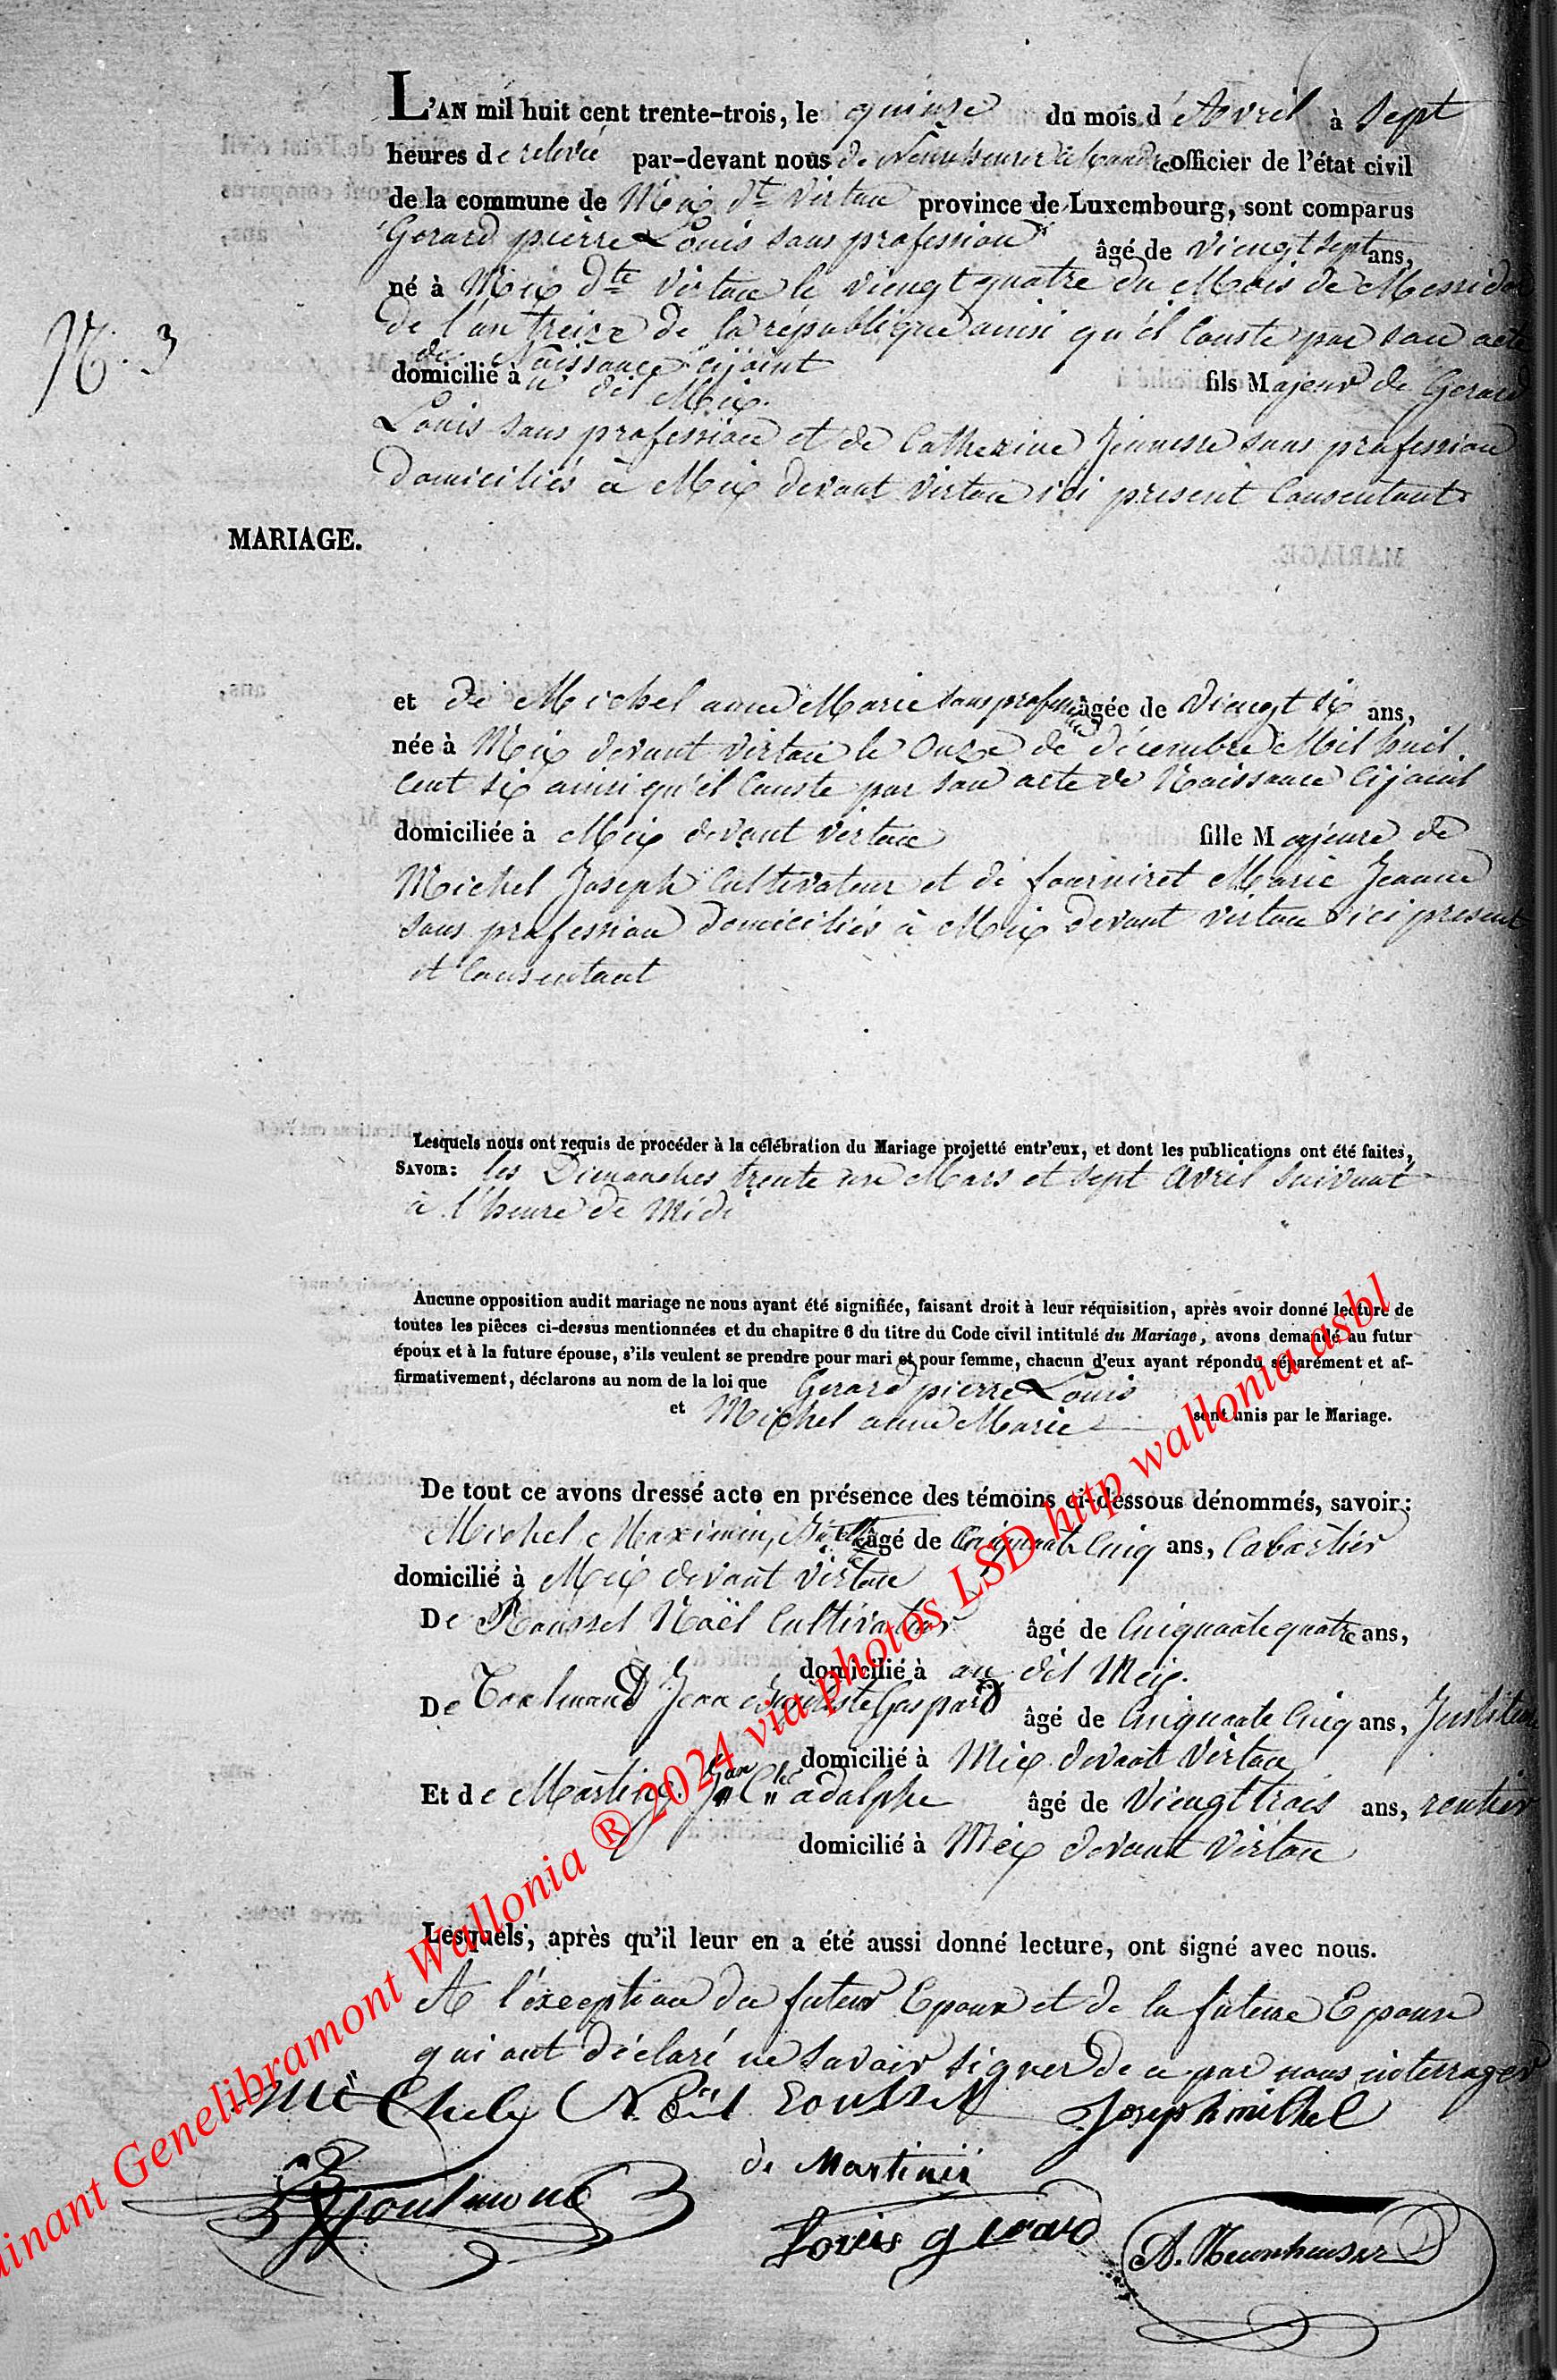 L'AN mil huit cent trente-trois, le quinze du mois d'Avril à Sept
heures de relevée par-devant nous de officier de l'état civil
de la commune de Meix dt Virton province de Luxembourg, sont comparus
Gerard pierre Louis sans profession âgé de viengt sept ans,
né à Meix dte Virton le viengt quatre du Mois de Messidor
de l'an treize de la république ainsi qu'il Conste par son acte
de Naissance cijoint
N. 3
domicilié à u dit Meix. fils Majeur de Gerard
Louis sans profession et de Catherine Jeunesse sans profession
Domiciliés à Meix devant Virton ici present Consentant
MARIAGE.
et de Michel anne Marie sans profession âgée de viengt six ans,
née à Meix devant Virton le Onze de décembre Mil huit
cent six ainsi qu'il Conste par son acte de Naissance Cijoint
domiciliée à Meix devant Virton fille Majeure de
Michel Joseph Cultivateur et de fourniret Marie Jeanne
sans profession domiciliés à Meix devant Virton ici present
et Consentant
Lesquels nous ont requis de procéder à la célébration du Mariage projetté entr'eux, et dont les publications ont été faites,
SAVOIR: les Dimanches trente un Mars et sept avril suivant
à l'heure de Midi
Aucune opposition audit mariage ne nous ayant été signifiée, faisant droit à leur réquisition, après avoir donné lecture de
toutes les pièces ci-dessus mentionnées et du chapitre 6 du titre du Code civil intitulé du Mariage, avons demandé au futur
époux et à la future épouse, s'ils veulent se prendre pour mari et pour femme, chacun d'eux ayant répondu séparément et af-
firmativement, déclarons au nom de la loi que Gerard pierre Louis
et Michel anne Marie sont unis par le Mariage.
De tout ce avons dressé acte en présence des témoins ci-dessous dénommés, savoir:
Michel Maximin, âgé de Cinquante Cinq ans, Cabartier
domicilié à Meix devant Virton
De Roussel Noël Cultivateur âgé de Cinquante quatre ans,
domicilié à au dit Meix.
De Toulmond Jean Baptiste Gaspard âgé de Cinquante Cinq ans, Instituteur
domicilié à Meix devant Virton
Et de Martiny. Jean Cle adolphe âgé de Viengt trois ans, rentier
domicilié à Meix devant Virton
Lesquels, après qu'il leur en a été aussi donné lecture, ont signé avec nous.
A l'exception du futur Epoux et de la future Epouse
qui ont déclaré ne savoir signer de ce par nous interrogés
Michel Noël roussel Joseph michel
Toulmond de Martinij
Louis gerard A. Neunheuser
Genelibramont Wallonia ® 2024 via photos LSD http wallonia asbl